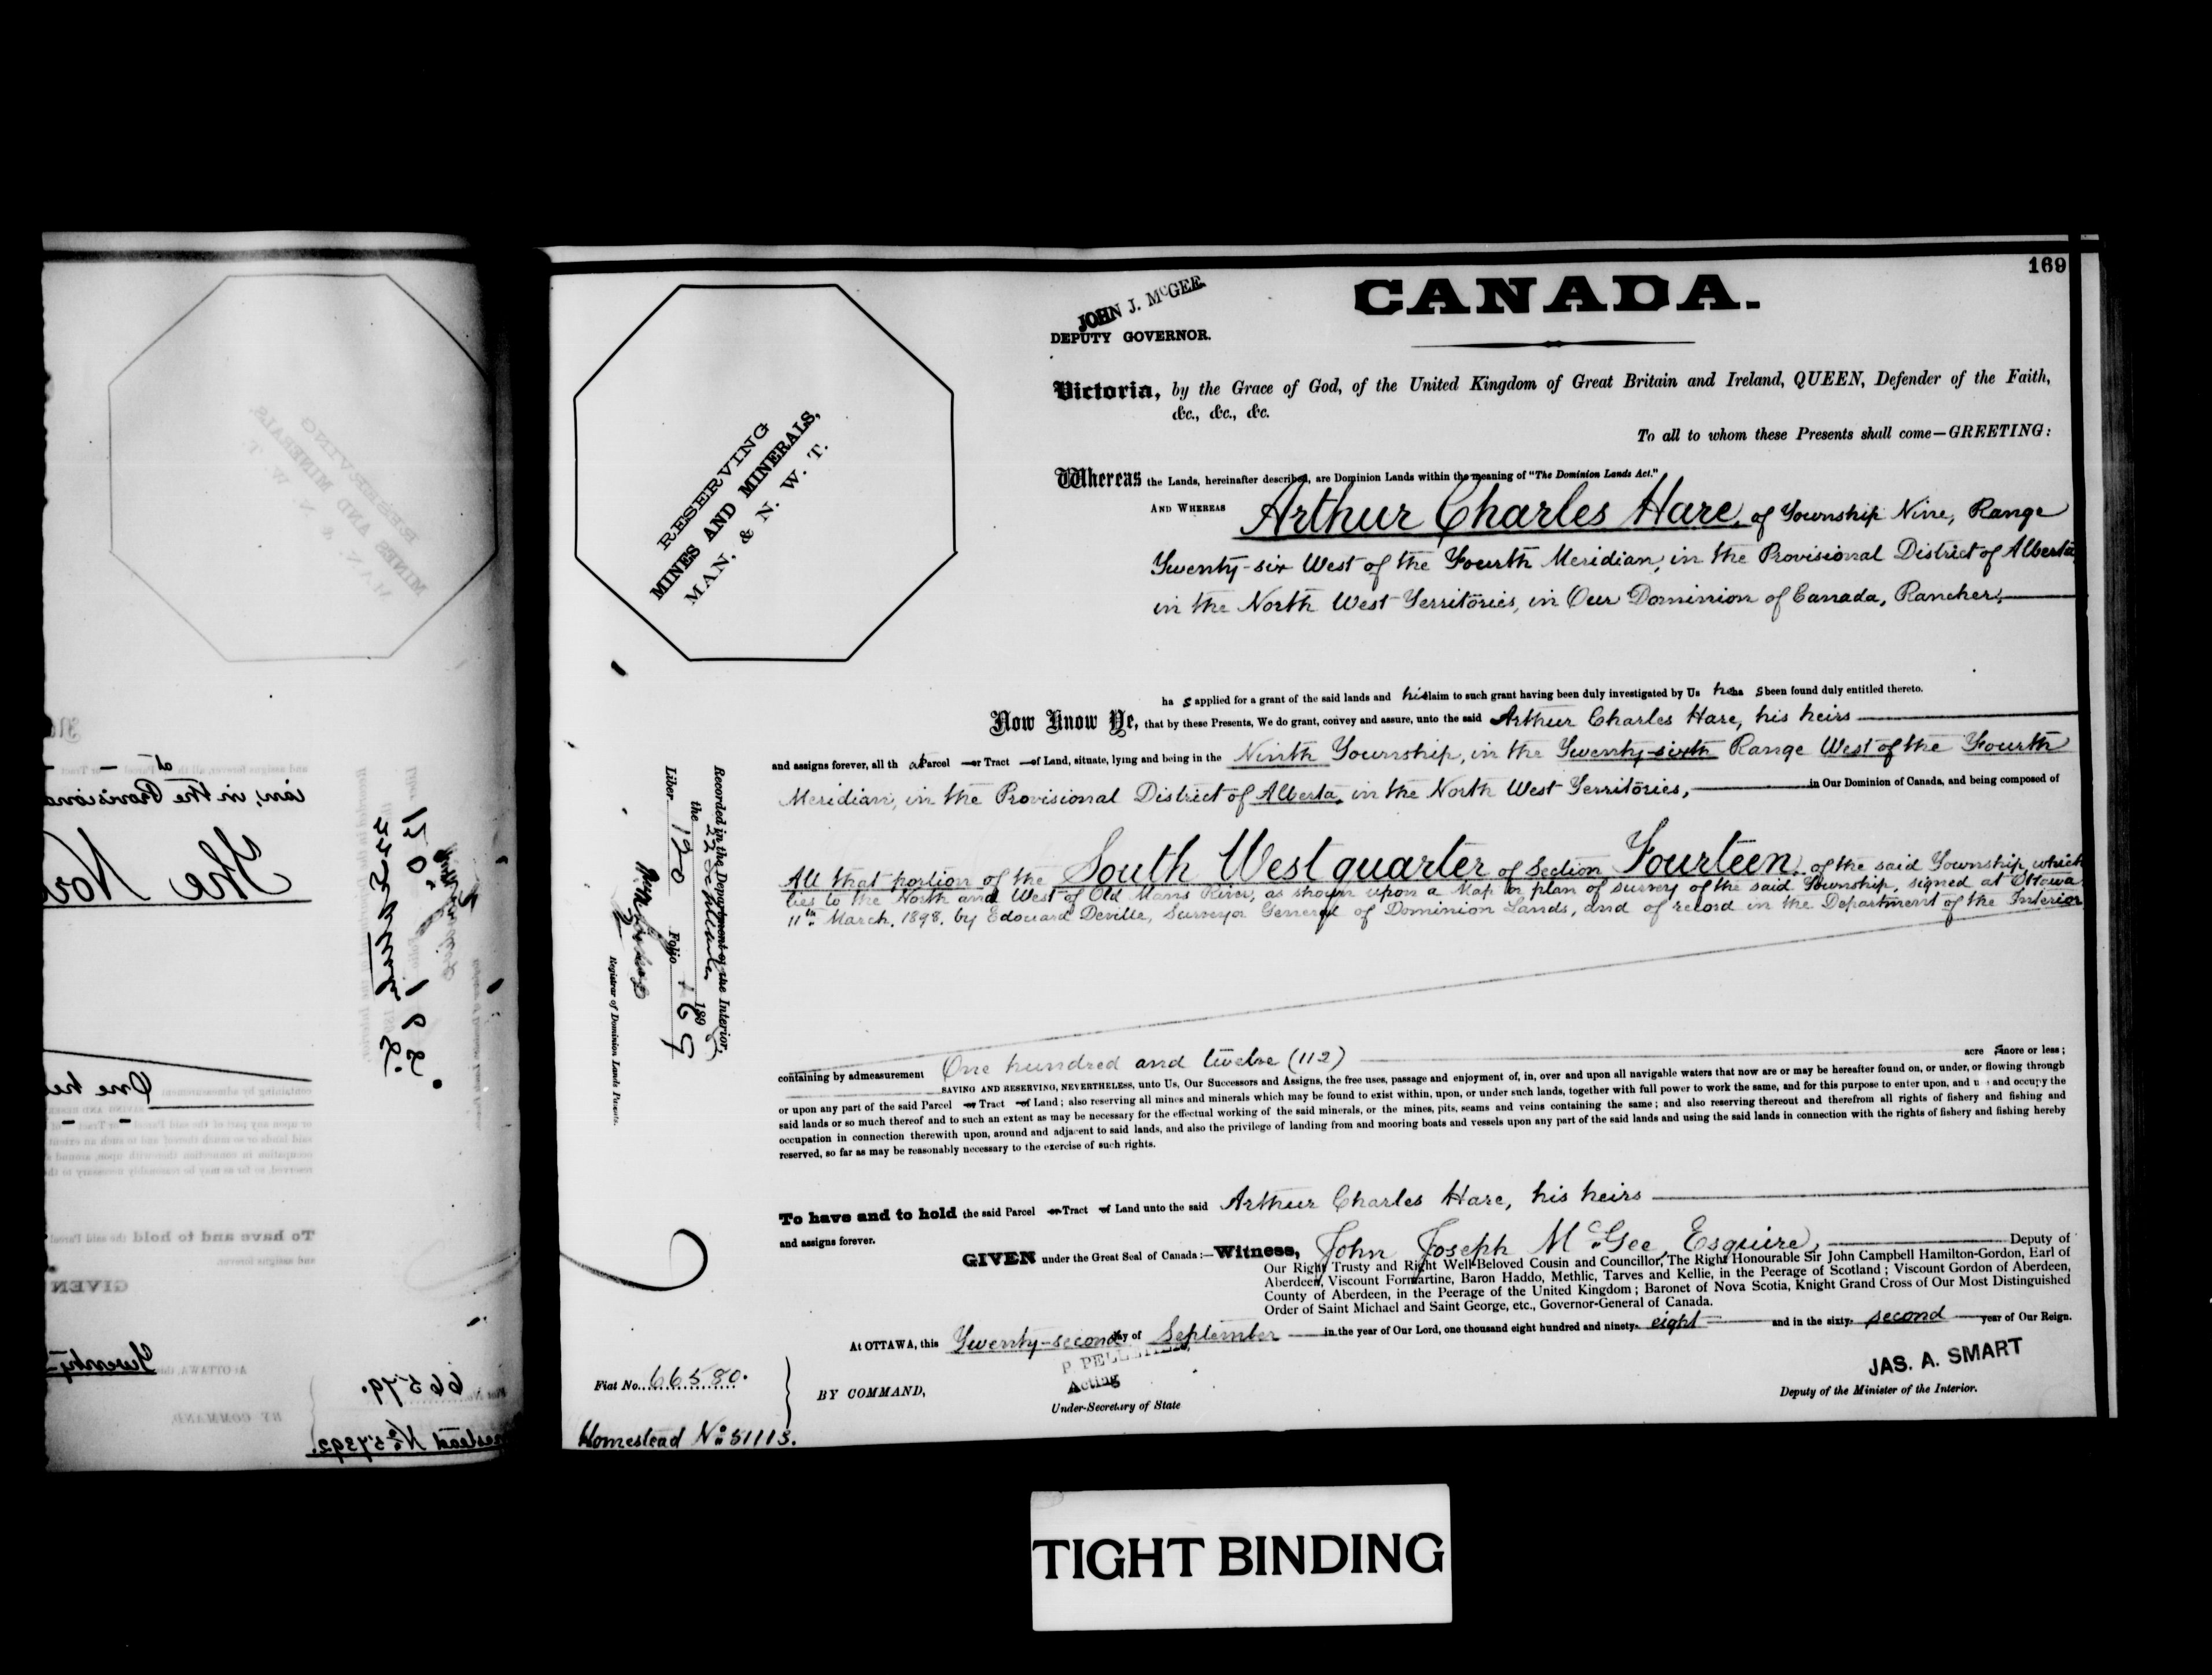 169
CANADA.
JOHN J. McGEE
DEPUTY GOVERNOR.
RESERVING
MINES AND MINERALS,
MAN. & N. W. T.
Victoria, by the Grace of God, of the United Kingdom of Great Britain and Ireland, QUEEN, Defender of the Faith,
&c., &c., &c.
To all to whom these Presents shall come—GREETING:
Whereas the Lands, hereinafter described, are Dominion Lands within the meaning of "The Dominion Lands Act."
AND WHEREAS Arthur Charles Hare, of Township Nine, Range
Twenty-six West of the Fourth Meridian, in the Provisional District of Alberta,
in the North West Territories, in Our Dominion of Canada, Rancher,
ha s applied for a grant of the said lands and his claim to such grant having been duly investigated by Us he ha s been found duly entitled thereto.
Now Know Ye, that by these Presents, We do grant, convey and assure, unto the said Arthur Charles Hare, his heirs
and assigns forever, all th at Parcel or Tract of Land, situate, lying and being in the Ninth Township, in the Twenty-sixth Range West of the Fourth
Meridian, in the Provisional District of Alberta, in the North West Territories, in Our Dominion of Canada, and being composed of
All that portion of the South West quarter of Section Fourteen, of the said Township, which
lies to the North and West of Old Mans River, as shown upon a Map or plan of survey of the said Township, signed at Ottawa
11th March, 1898, by Edouard Deville, Surveyor General of Dominion Lands, and of record in the Department of the Interior
containing by admeasurement One hundred and twelve (112) acre s more or less;
SAVING AND RESERVING, NEVERTHELESS, unto Us, Our Successors and Assigns, the free uses, passage and enjoyment of, in, over and upon all navigable waters that now are or may be hereafter found on, or under, or flowing through
or upon any part of the said Parcel or Tract of Land; also reserving all mines and minerals which may be found to exist within, upon, or under such lands, together with full power to work the same, and for this purpose to enter upon, and u and occupy the
said lands or so much thereof and to such an extent as may be necessary for the effectual working of the said minerals, or the mines, pits, seams and veins containing the same; and also reserving thereout and therefrom all rights of fishery and fishing and
occupation in connection therewith upon, around and adjacent to said lands, and also the privilege of landing from and mooring boats and vessels upon any part of the said lands and using the said lands in connection with the rights of fishery and fishing hereby
reserved, so far as may be reasonably necessary to the exercise of such rights.
To have and to hold the said Parcel or Tract of Land unto the said Arthur Charles Hare, his heirs
and assigns forever.
GIVEN under the Great Seal of Canada:—Witness, John Joseph McGee, Esquire, Deputy of
Our Right Trusty and Right Well-Beloved Cousin and Councillor, The Right Honourable Sir John Campbell Hamilton-Gordon, Earl of
Aberdeen, Viscount Formartine, Baron Haddo, Methlic, Tarves and Kellie, in the Peerage of Scotland; Viscount Gordon of Aberdeen,
County of Aberdeen, in the Peerage of the United Kingdom; Baronet of Nova Scotia, Knight Grand Cross of Our Most Distinguished
Order of Saint Michael and Saint George, etc., Governor-General of Canada.
At OTTAWA, this Twenty-second day of September in the year of Our Lord, one thousand eight hundred and ninety-eight and in the sixty-second year of Our Reign.
P PELLETIER,
Acting
Under-Secretary of State
BY COMMAND,
JAS. A. SMART
Deputy of the Minister of the Interior.
Fiat No. 66580.
Homestead No. 51113.
Recorded in the Department of the Interior,
the 22 September 1898
Liber 120 Folio 169
Registrar of Dominion Lands Patents.
TIGHT BINDING